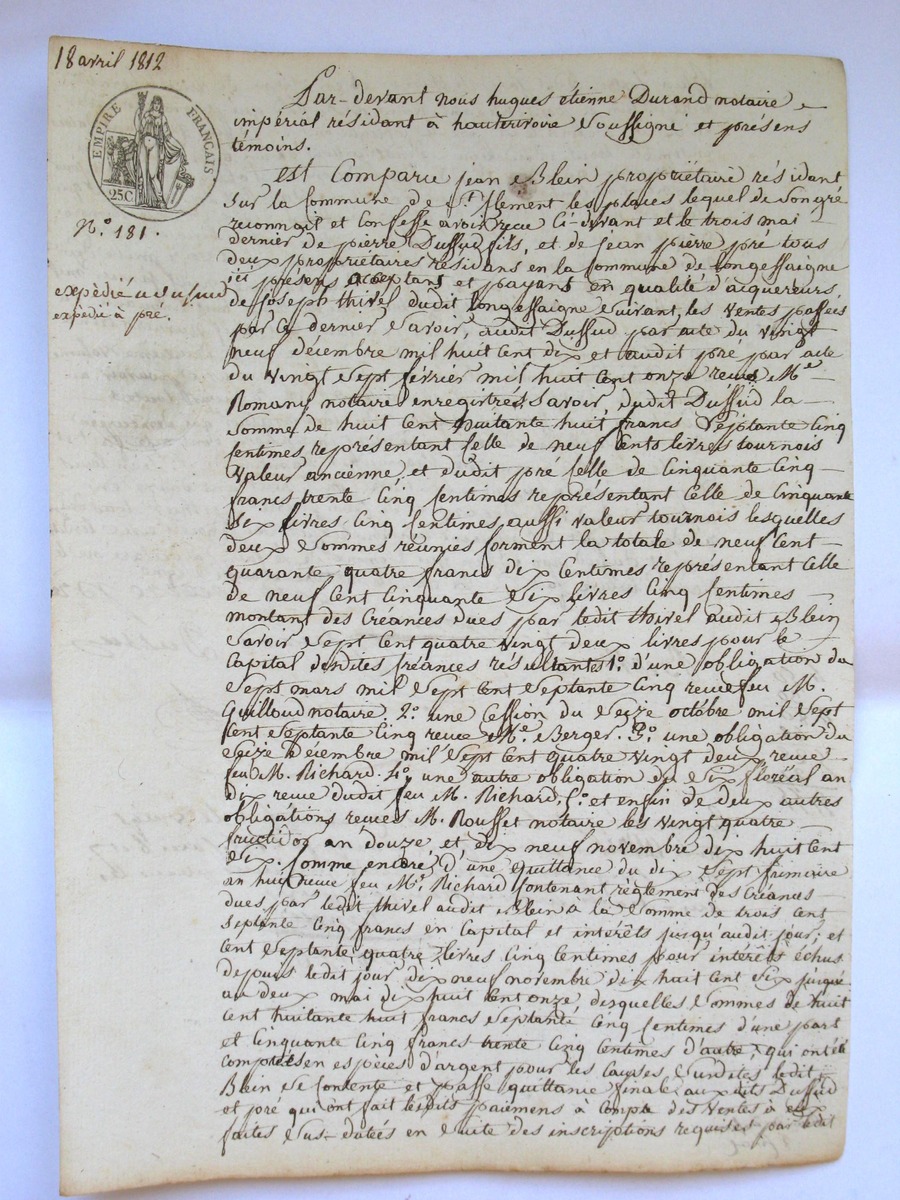 18 avril 1812
EMPIRE FRANÇAIS
25C
N.o 181.
expédié à Dussud
expédié à pré.
Par-devant nous hugues étienne Durand notaire
impérial résidant à hauterivoire soussigné et présens
témoins.
est Comparu jean Blein propriétaire résidant
sur la Commune de St. Clement les places lequel de son gré
reconnait et Confesse avoir reçu Ci-devant et le trois mai
dernier de pierre Dussud fils, et de jean pierre pré tous
deux propriétaires résidans en la Commune de longessaigne
ici présens acceptans et payans en qualité d'acquereurs
de joseph thivel dudit longessaigne suivant les Ventes passées
par Ce dernier Savoir, audit Dussud par acte du vingt
neuf décembre mil huit Cent dix et audit pré par acte
du vingt Sept février mil huit Cent onze reçus Me
Romany notaire enregistrés, Savoir, dudit Dussud la
Somme de huit Cent huitante huit francs Septante Cinq
Centimes représentant Celle de neuf Cents livres tournois
valeur ancienne, et dudit pré Celle de Cinquante Cinq
francs trente Cinq Centimes représentant Celle de Cinquante
Six livres Cinq Centimes aussi valeur tournois lesquelles
deux Sommes réunies forment la totale de neuf Cent
quarante quatre francs dix Centimes représentant Celle
de neuf Cent Cinquante Six livres Cinq Centimes
montant des Créances dues par ledit thivel audit Blein
Savoir Sept Cent quatre vingt deux livres pour le
Capital desdites Créances résultantes 1o. d'une obligation du
Sept mars mil Sept Cent Septante Cinq reçue feu M.
Guilloud notaire. 2o. une Cession du Seize octobre mil Sept
Cent Septante Cinq reçue Me. Berger. 3o. une obligation du
Seize décembre mil Sept Cent quatre vingt deux reçue
feu M. Richard. 4o. une autre obligation du Six floréal an
dix reçue dudit feu M. Richard. 5o. et enfin de deux autres
obligations reçues M. Rousset notaire les vingt quatre
fructidor an douze et dix neuf novembre dix huit Cent
Six. Comme encore d'une quittance du dix Sept frimaire
an huit reçue feu Me. Richard Contenant règlement des Créances
dues par ledit thivel audit Blein à la Somme de trois Cent
Septante Cinq francs en Capital et intérêts jusqu'audit jour; et
Cent Septante quatre livres Cinq Centimes pour intérêts échus
depuis ledit jour dix neuf novembre dix huit Cent Six jusqu'
au deux mai dix huit Cent onze, desquelles Sommes de huit
Cent huitante huit francs Septante Cinq Centimes d'une part
et Cinquante Cinq francs trente Cinq Centimes d'autre, qui ont été
Comptées en espèces d'argent pour les Causes Susdites ledit
Blein Se Contente et passe quittance finale auxdits Dussud
et pré qui ont fait lesdits paiemens à Compte des Ventes à eux
faites Sus-datées en Suite des inscriptions requises par ledit